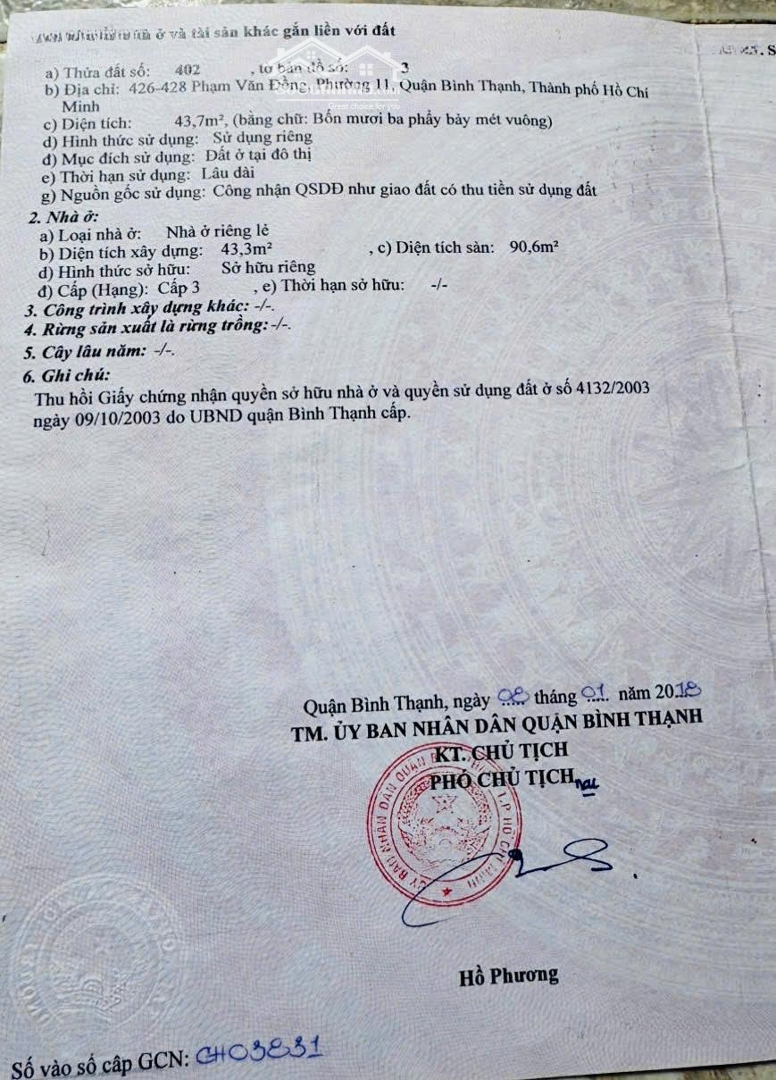 ở và tài sản khác gắn liền với đất
a) Thửa đất số: 402 , tờ bản đồ số: 3
b) Địa chỉ: 426-428 Phạm Văn Đồng, Phường 11, Quận Bình Thạnh, Thành phố Hồ Chí
Minh
Great choice for you
c) Diện tích: 43,7m², (bằng chữ: Bốn mươi ba phẩy bảy mét vuông)
d) Hình thức sử dụng: Sử dụng riêng
đ) Mục đích sử dụng: Đất ở tại đô thị
e) Thời hạn sử dụng: Lâu dài
g) Nguồn gốc sử dụng: Công nhận QSDĐ như giao đất có thu tiền sử dụng đất
2. Nhà ở:
a) Loại nhà ở: Nhà ở riêng lẻ
b) Diện tích xây dựng: 43,3m² , c) Diện tích sàn: 90,6m²
d) Hình thức sở hữu: Sở hữu riêng
đ) Cấp (Hạng): Cấp 3 , e) Thời hạn sở hữu: -/-
3. Công trình xây dựng khác: -/-.
4. Rừng sản xuất là rừng trồng: -/-.
5. Cây lâu năm: -/-.
6. Ghi chú:
Thu hồi Giấy chứng nhận quyền sở hữu nhà ở và quyền sử dụng đất ở số 4132/2003
ngày 09/10/2003 do UBND quận Bình Thạnh cấp.
Quận Bình Thạnh, ngày 08 tháng 01 năm 2018
TM. ỦY BAN NHÂN DÂN QUẬN BÌNH THẠNH
KT. CHỦ TỊCH
PHÓ CHỦ TỊCH
Hồ Phương
Số vào sổ cấp GCN: CH03831